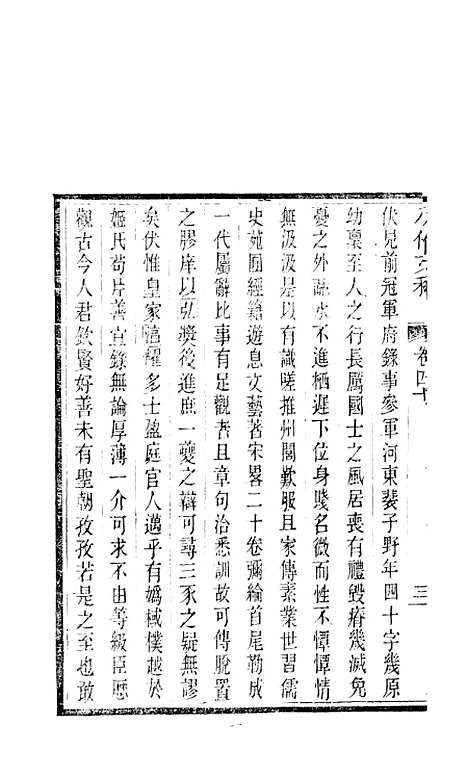 卷四十
三
伏見前冠軍府錄事參軍河東裴子野年四十字幾原
幼稟至人之行長厲國士之風居喪有禮毀瘠幾滅免
憂之外蔬水不進栖遲下位身賤名微而性不憛憛情
無汲汲是以有識嗟推州閭歎服且家傳素業世習儒
史苑囿經籍遊息文藝著宋畧二十卷彌綸首尾勒成
一代屬辭比事有足觀者且章句洽悉訓故可傳脫置
之膠庠以弘獎後進庶一夔之辯可尋三豕之疑無謬
矣伏惟皇家淳耀多士盈庭官人邁乎有媯棫樸越於
姬氏苟片善宜錄無論厚薄一介可求不由等級臣歷
觀古今人君欽賢好善未有聖朝孜孜若是之至也敢